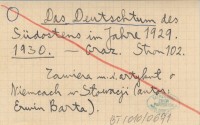 Das Deutschtum des
Südostens im Jahre 1929.
1930. — Graz. Stron 102.
Zawiera m.i. artykuł o
Niemcach w Słowacji (autor:
Erwin Barta).
BT 1010/0691